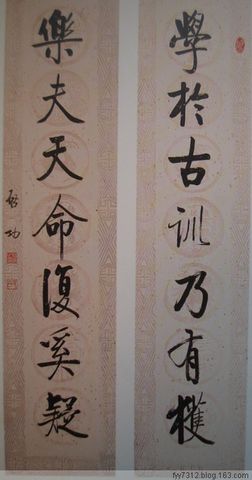 學於古訓乃有獲
樂夫天命復奚疑
啟功
fyy7312.blog.163.com